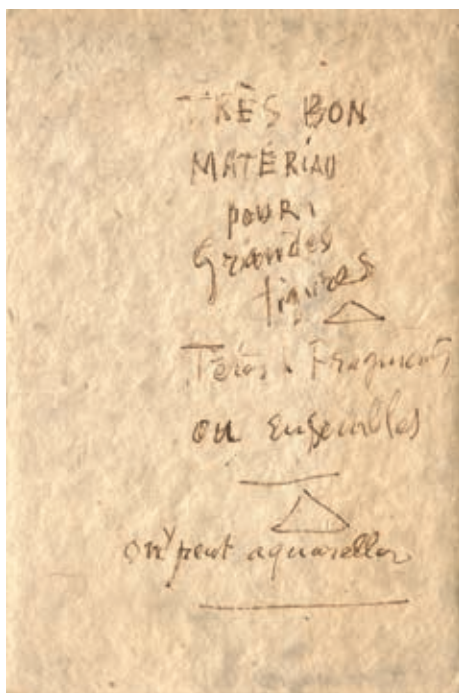 TRÈS BON
MATÉRIAU
POUR
Grandes
figures
Fragments
ou ensembles
on peut aquareller